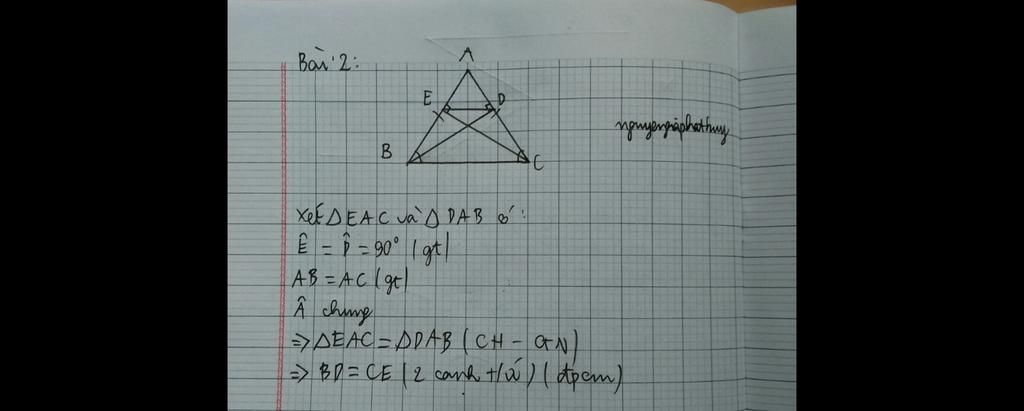 Bài 2:
A
E D
nguyengiaphathuy
B C
Xét △EAC và △DAB có:
Ê = D̂ = 90° (gt)
AB = AC (gt)
Â chung
=> △EAC = △DAB (CH - GN)
=> BD = CE (2 cạnh t/ứ) (đpcm)